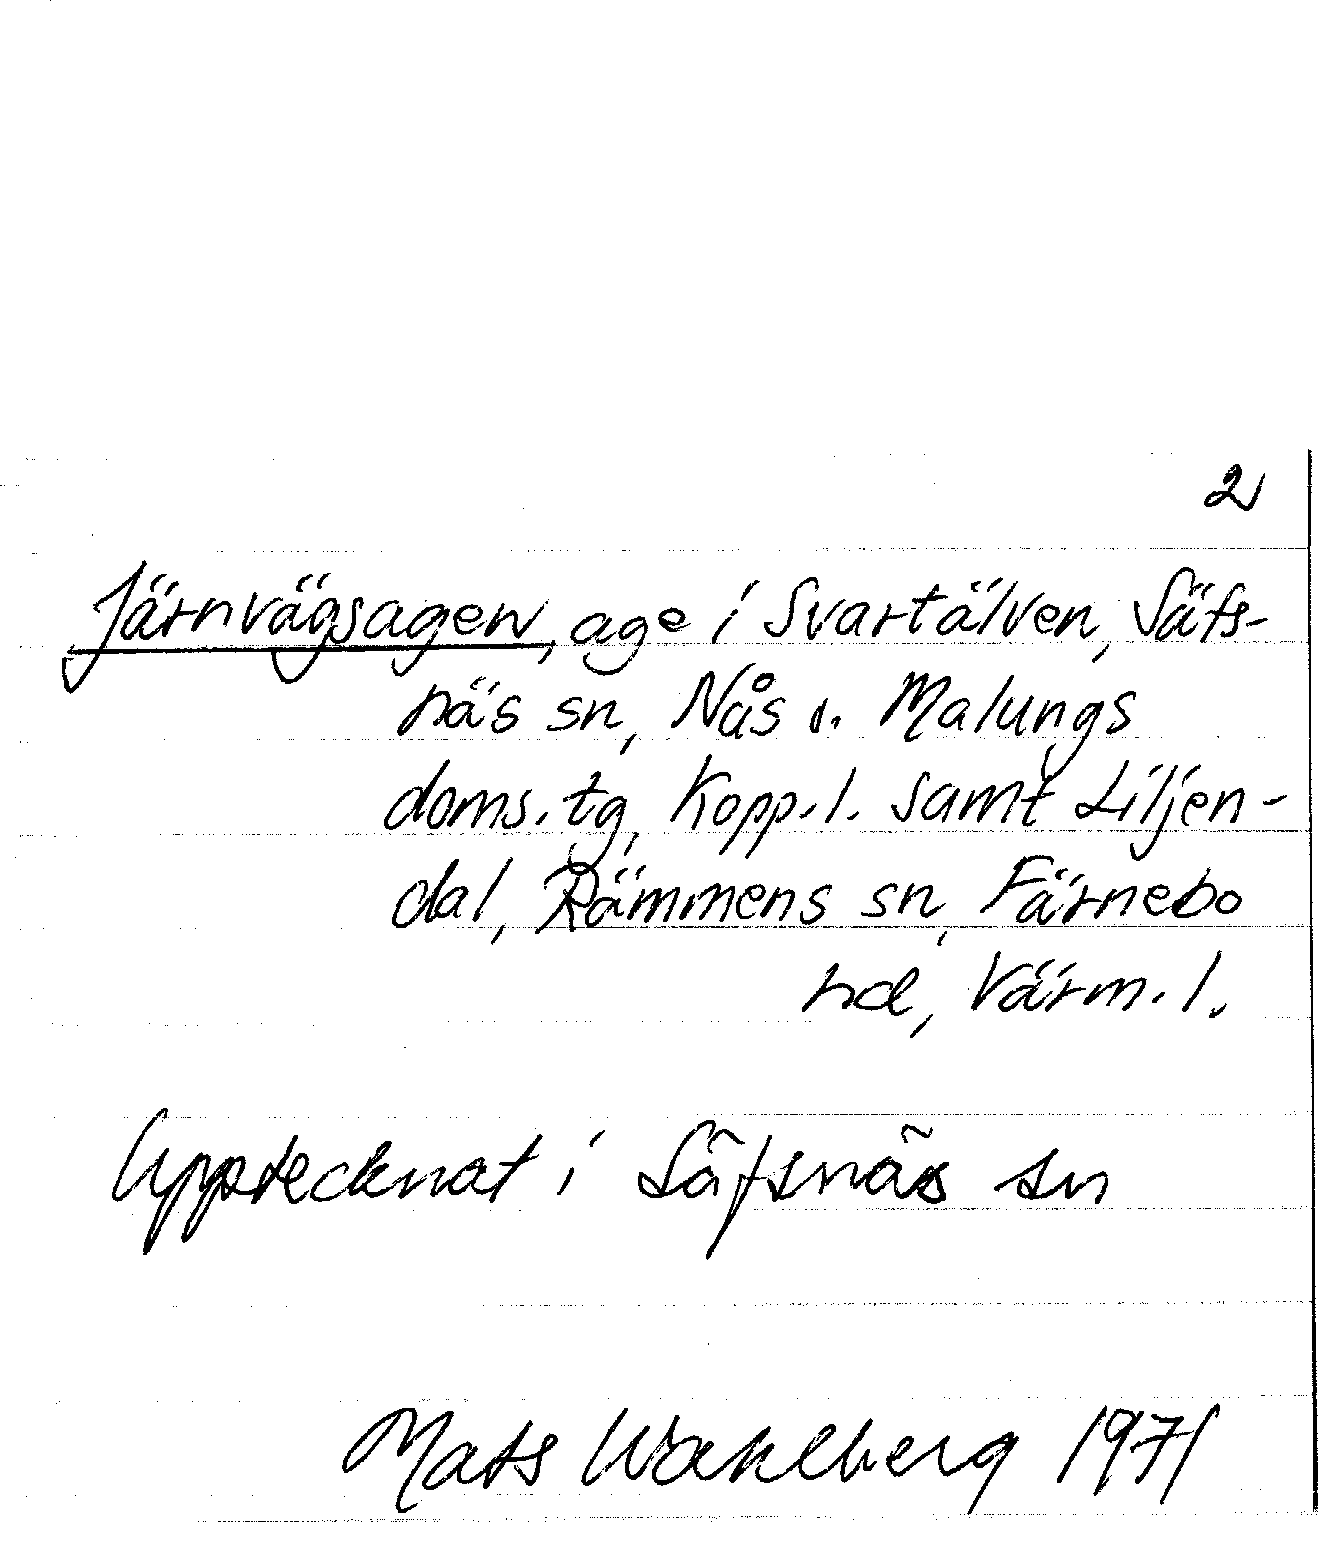 2
Järnvägsagen, age i Svartälven, Säfs-
näs sn, Nås o. Malungs
doms.tg, Kopp.l. samt Liljen-
dal, Rämmens sn, Färnebo
hd, Värm.l.
Upptecknat i Säfsnäs sn
Mats Wahlberg 1971